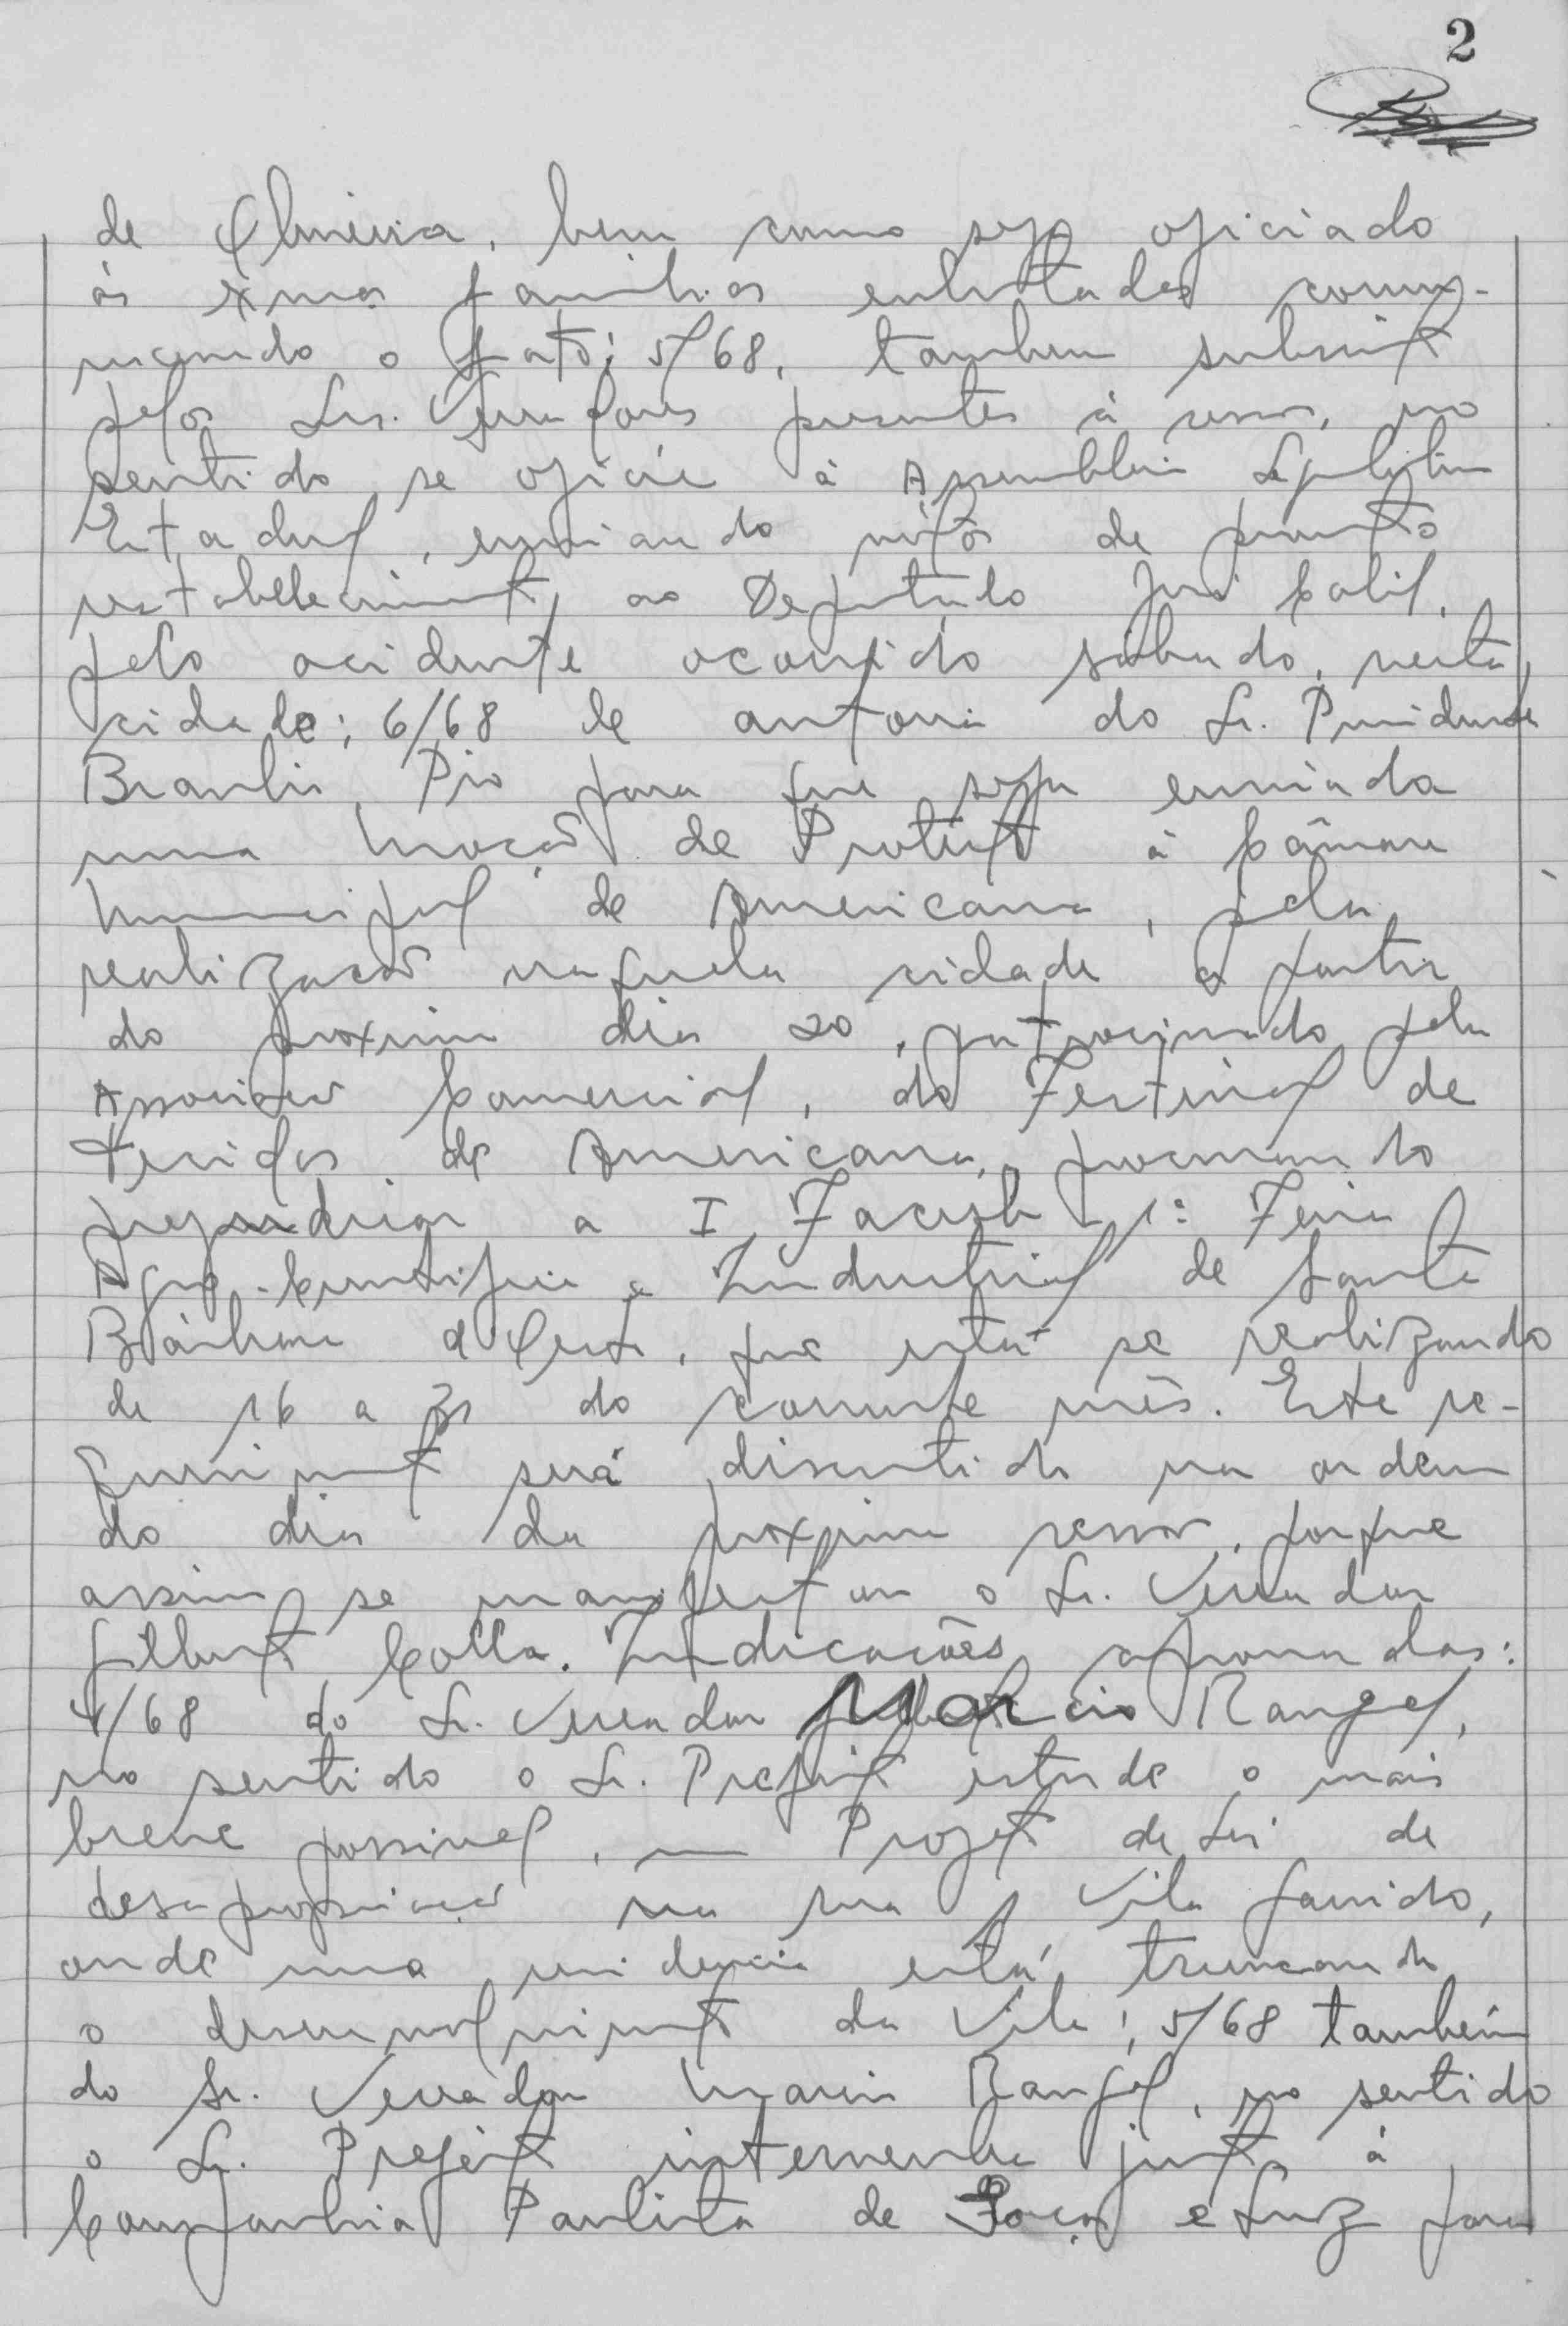 2
de Oliveira, bem como seja oficiado
às exmas famílias enlutadas comu-
nicando o fato; 5/68, tambem subscrito
pelos Srs. Vereadores presentes à sessão, no
sentido se oficie à Assembleia Legislativa
Estadual, enviando votos de pronto
restabelecimento ao Deputado José Calil,
pelo acidente ocorrido sábado, nesta
cidade; 6/68 de autoria do Sr. Presidente
Braulio Pio para que seja enviada
uma Moção de Protesto à Câmara
Municipal de Americana, pela
realização naquela cidade a partir
do proximo dia 20, patrocinado pela
Associação Comercial, do Festival de
Tecidos de Americana, procurando
prejudicar a I Facisb - 1ª Feira
Agro-Cientifica e Industrial de Santa
Bárbara d'Oeste, que está se realizando
de 16 a 31 do corrente mês. Este re-
querimento será discutido na ordem
do dia da proxima sessão, porque
assim se manifestou o Sr. Vereador
Gilberto Colla. Indicações aprovadas:
4/68 do Sr. Vereador Marcio Rangel,
no sentido o Sr. Prefeito estude o mais
breve possivel, um Projeto de Lei de
desapropriação na rua Vila Garrido,
onde uma residencia está truncando
o desenvolvimento da Vila; 5/68 também
do Sr. Vereador Marcio Rangel, no sentido
o Sr. Prefeito intervenha junto à
Companhia Paulista de Força e Luz para